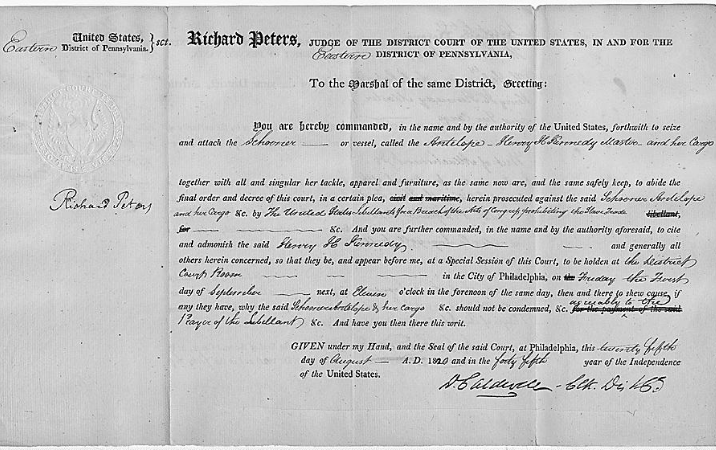 United States,
Eastern District of Pennsylvania. } sct.
Richard Peters, JUDGE OF THE DISTRICT COURT OF THE UNITED STATES, IN AND FOR THE
Eastern DISTRICT OF PENNSYLVANIA,
To the Marshal of the same District, Greeting:
You are hereby commanded, in the name and by the authority of the United States, forthwith to seize
and attach the Schooner or vessel, called the Antelope - Henry H Kennedy Master - and her Cargo
together with all and singular her tackle, apparel and furniture, as the same now are, and the same safely keep, to abide the
final order and decree of this court, in a certain plea, civil and maritime, herein prosecuted against the said Schooner Antelope
and her Cargo &c. by The United States Libellants for a Breach of the Acts of Congress prohibiting the Slave Trade libellant,
for &c. And you are further commanded, in the name and by the authority aforesaid, to cite
and admonish the said Henry H Kennedy, and generally all
others herein concerned, so that they be, and appear before me, at a Special Session of this Court, to be holden at the District
Court Room in the City of Philadelphia, on the Friday the First
day of September next, at Eleven o'clock in the forenoon of the same day, then and there to shew cause, if
any they have, why the said Schooner Antelope & her Cargo &c. should not be condemned, &c. agreeably to the for the payment of the said
Prayer of the Libellants &c. And have you then there this writ.
Richard Peters
GIVEN under my Hand, and the Seal of the said Court, at Philadelphia, this twenty fifth
day of August A. D. 1820 and in the forty fifth year of the Independence
of the United States.
D Caldwell - Clk. Dist Ct